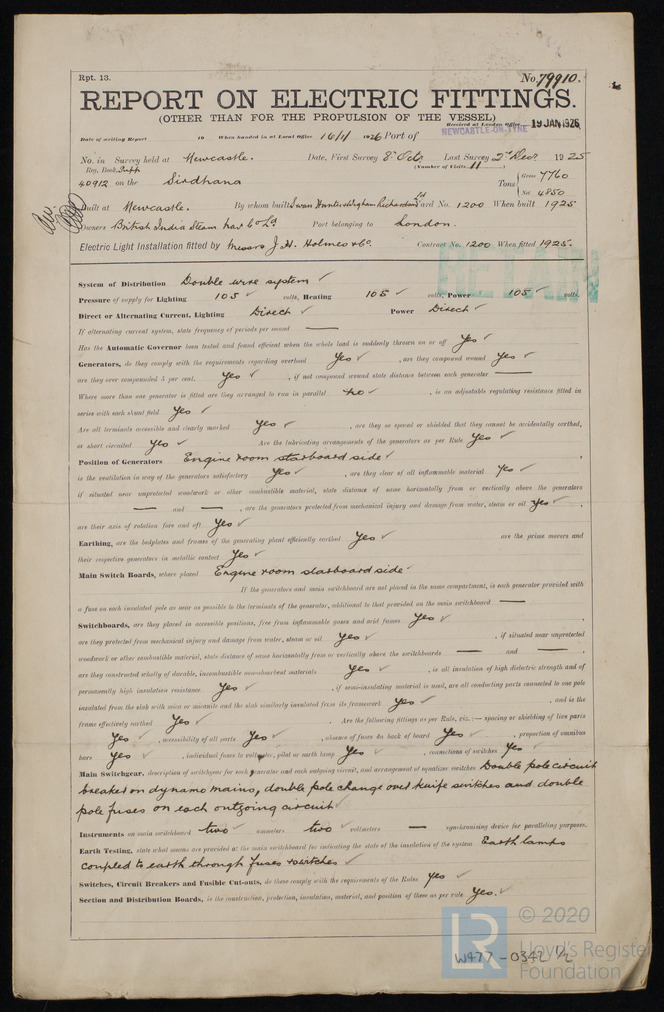 Rpt. 13.
No. 79910.
REPORT ON ELECTRIC FITTINGS.
(OTHER THAN FOR THE PROPULSION OF THE VESSEL)
Received at London Office 19 JAN 1926
Date of writing Report 19 When handed in at Local Office 16/1/1926 Port of NEWCASTLE-ON-TYNE
No. in Survey held at Newcastle. Date, First Survey 8th Octr Last Survey 2nd Decr 1925
Reg. Book. Supp (Number of Visits 11)
40912 on the Sirdhana Tons Gross 7760
Net 4850
Built at Newcastle. By whom built Swan Hunter Wigham Richardson Ld Yard No. 1200 When built 1925
Owners British India Steam Nav Co Ld Port belonging to London.
Electric Light Installation fitted by Messrs J. H. Holmes & Co. Contract No. 1200 When fitted 1925.
RETAIN
System of Distribution Double wire system ✓
Pressure of supply for Lighting 105 ✓ volts, Heating 105 ✓ volts, Power 105 ✓ volts.
Direct or Alternating Current, Lighting Direct ✓ Power Direct ✓
If alternating current system, state frequency of periods per second —
Has the Automatic Governor been tested and found efficient when the whole load is suddenly thrown on or off Yes ✓
Generators, do they comply with the requirements regarding overload Yes ✓, are they compound wound Yes ✓
are they over compounded 5 per cent. Yes ✓, if not compound wound state distance between each generator —
Where more than one generator is fitted are they arranged to run in parallel no ✓, is an adjustable regulating resistance fitted in
series with each shunt field Yes ✓
Are all terminals accessible and clearly marked Yes ✓, are they so spaced or shielded that they cannot be accidentally earthed,
or short circuited Yes ✓ Are the lubricating arrangements of the generators as per Rule Yes ✓
Position of Generators Engine room starboard side ✓
is the ventilation in way of the generators satisfactory Yes ✓, are they clear of all inflammable material Yes ✓
if situated near unprotected woodwork or other combustible material, state distance of same horizontally from or vertically above the generators
— and —, are the generators protected from mechanical injury and damage from water, steam or oil Yes ✓
are their axis of rotation fore and aft Yes ✓
Earthing, are the bedplates and frames of the generating plant efficiently earthed Yes ✓ are the prime movers and
their respective generators in metallic contact Yes ✓
Main Switch Boards, where placed Engine room starboard side ✓
If the generators and main switchboard are not placed in the same compartment, is each generator provided with
a fuse on each insulated pole as near as possible to the terminals of the generator, additional to that provided on the main switchboard —
Switchboards, are they placed in accessible positions, free from inflammable gases and acid fumes Yes ✓
are they protected from mechanical injury and damage from water, steam or oil Yes ✓, if situated near unprotected
woodwork or other combustible material, state distance of same horizontally from or vertically above the switchboards — and —
are they constructed wholly of durable, incombustible non-absorbent materials Yes ✓, is all insulation of high dielectric strength and of
permanently high insulation resistance Yes ✓, if semi-insulating material is used, are all conducting parts connected to one pole
insulated from the slab with mica or micanite and the slab similarly insulated from its framework Yes ✓, and is the
frame effectively earthed Yes ✓ Are the following fittings as per Rule, viz.:— spacing or shielding of live parts
Yes ✓, accessibility of all parts Yes ✓, absence of fuses on back of board Yes ✓, proportion of omnibus
bars Yes ✓, individual fuses to voltmeter, pilot or earth lamp Yes ✓, connections of switches Yes ✓
Main Switchgear, description of switchgear for each generator and each outgoing circuit, and arrangement of equalizer switches Double pole circuit
breaker on dynamo mains, double pole change over knife switches and double
pole fuses on each outgoing circuit ✓
Instruments on main switchboard two ✓ ammeters two ✓ voltmeters — synchronising device for paralleling purposes.
Earth Testing, state what means are provided at the main switchboard for indicating the state of the insulation of the system Earth lamps
coupled to earth through fuses & switches ✓
Switches, Circuit Breakers and Fusible Cut-outs, do these comply with the requirements of the Rules yes ✓
Section and Distribution Boards, is the construction, protection, insulation, material, and position of these as per rule Yes. ✓
LR © 2020
Lloyd's Register
Foundation
W477-0342 1/2